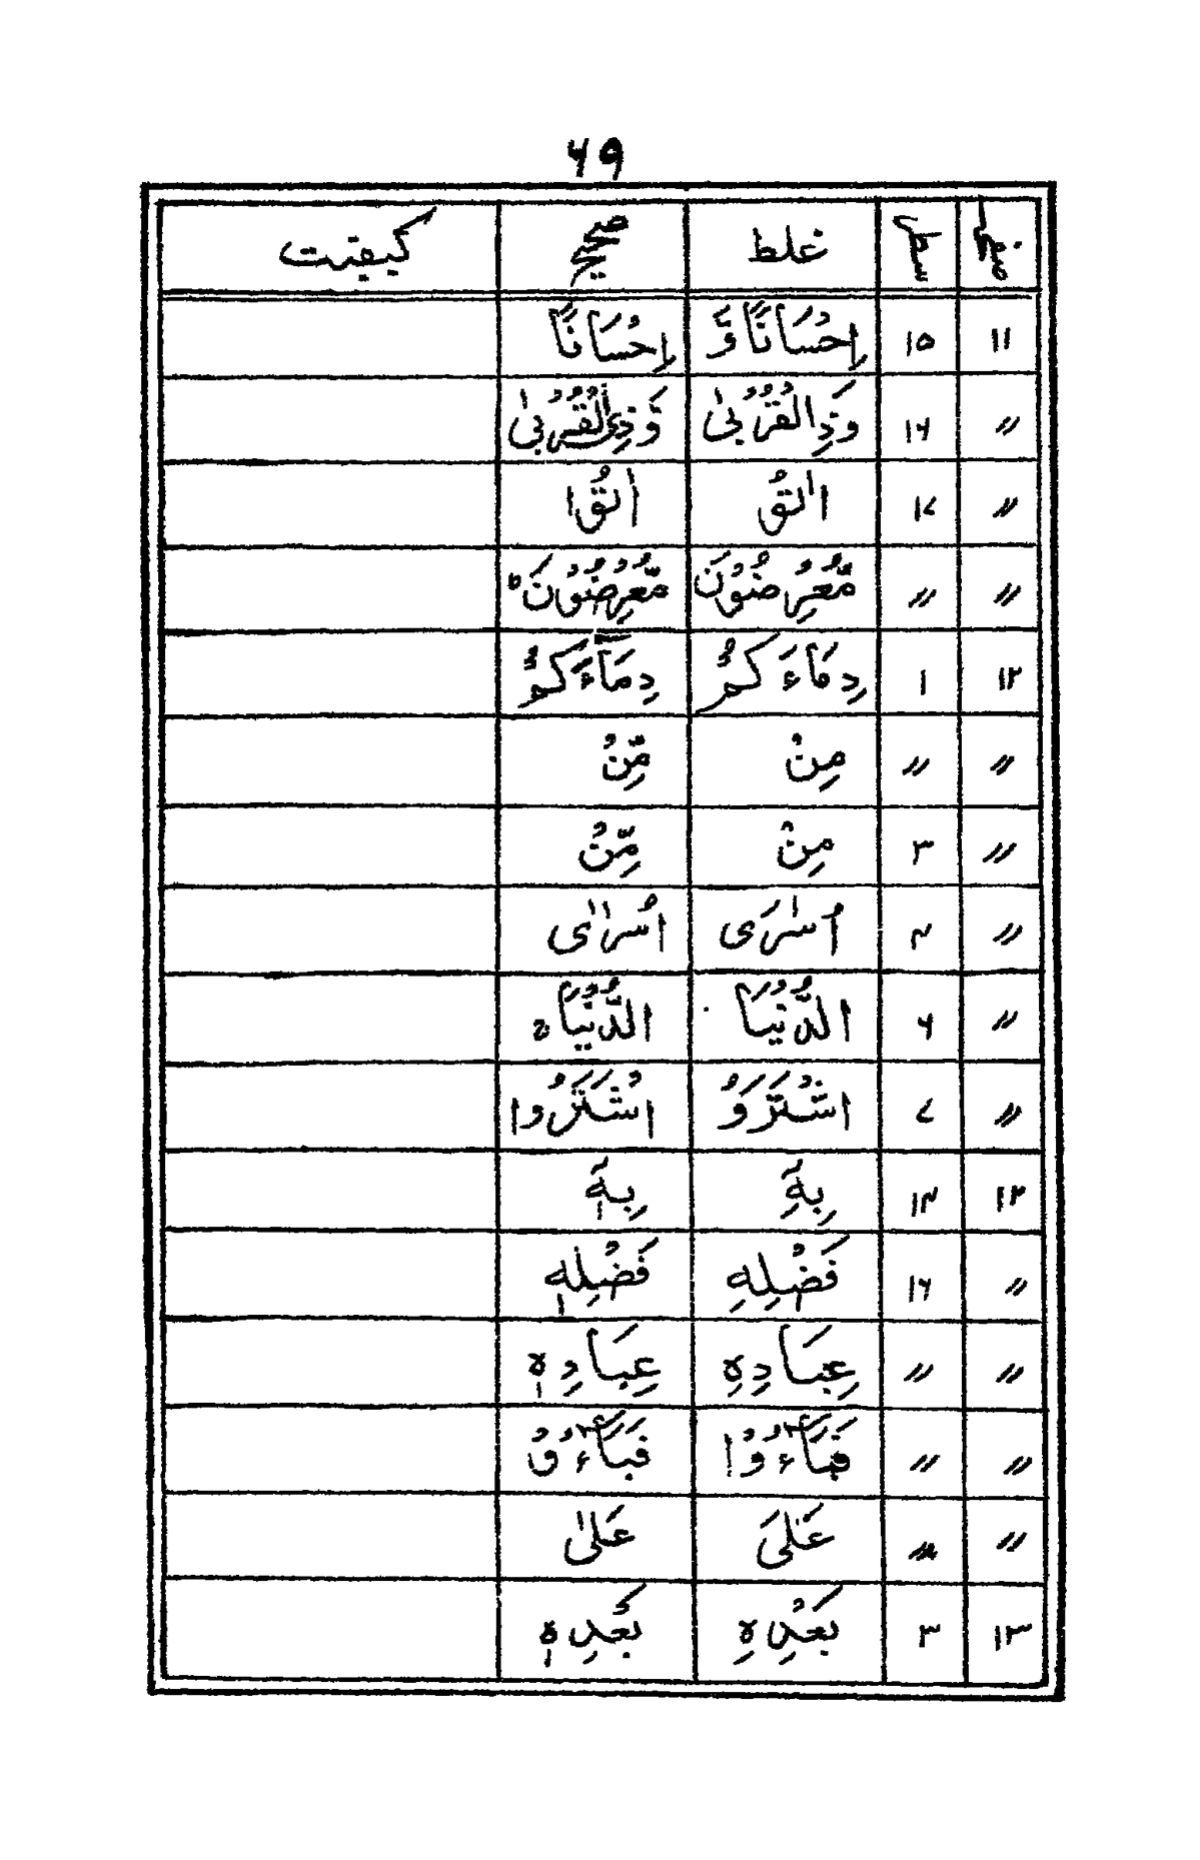 ۶۹
صفحہ سطر غلط صحیح کیفیت
۱۱ ۱۵ اِحْسَانًا وَّ اِحْسَانًا
〃 ۱۶ وَذِالْقُرْبٰى وَّذِى الْقُرْبٰى
〃 ۱۷ الٰتُق اٰتُقا
〃 〃 مُّعْرِضُوْنَ مُّعْرِضُوْنَ ؕ
۱۲ ۱ دِمَاءَكُمْ دِمَآءَكُمْ
〃 〃 مِنْ مِّنْ
〃 ۳ مِنْ مِّنْ
〃 ۴ اُسٰرَى اُسٰرٰى
〃 ۶ الدُّنْيَا الدُّنْيَا ہ
〃 ۷ اشْتَرَوُ اشْتَرَوْا
۱۲ ۱۴ بِهٖۤ بِهٖۤ
〃 ۱۶ فَضْلِهِ فَضْلِهٖ
〃 〃 عِبَادِهِ عِبَادِهٖ
〃 〃 فَبَآءُوْا فَبَآءُوْ
〃 〃 عَلىَ عَلٰى
۱۳ ۳ بَعْدِهِ بَعْدِهٖ